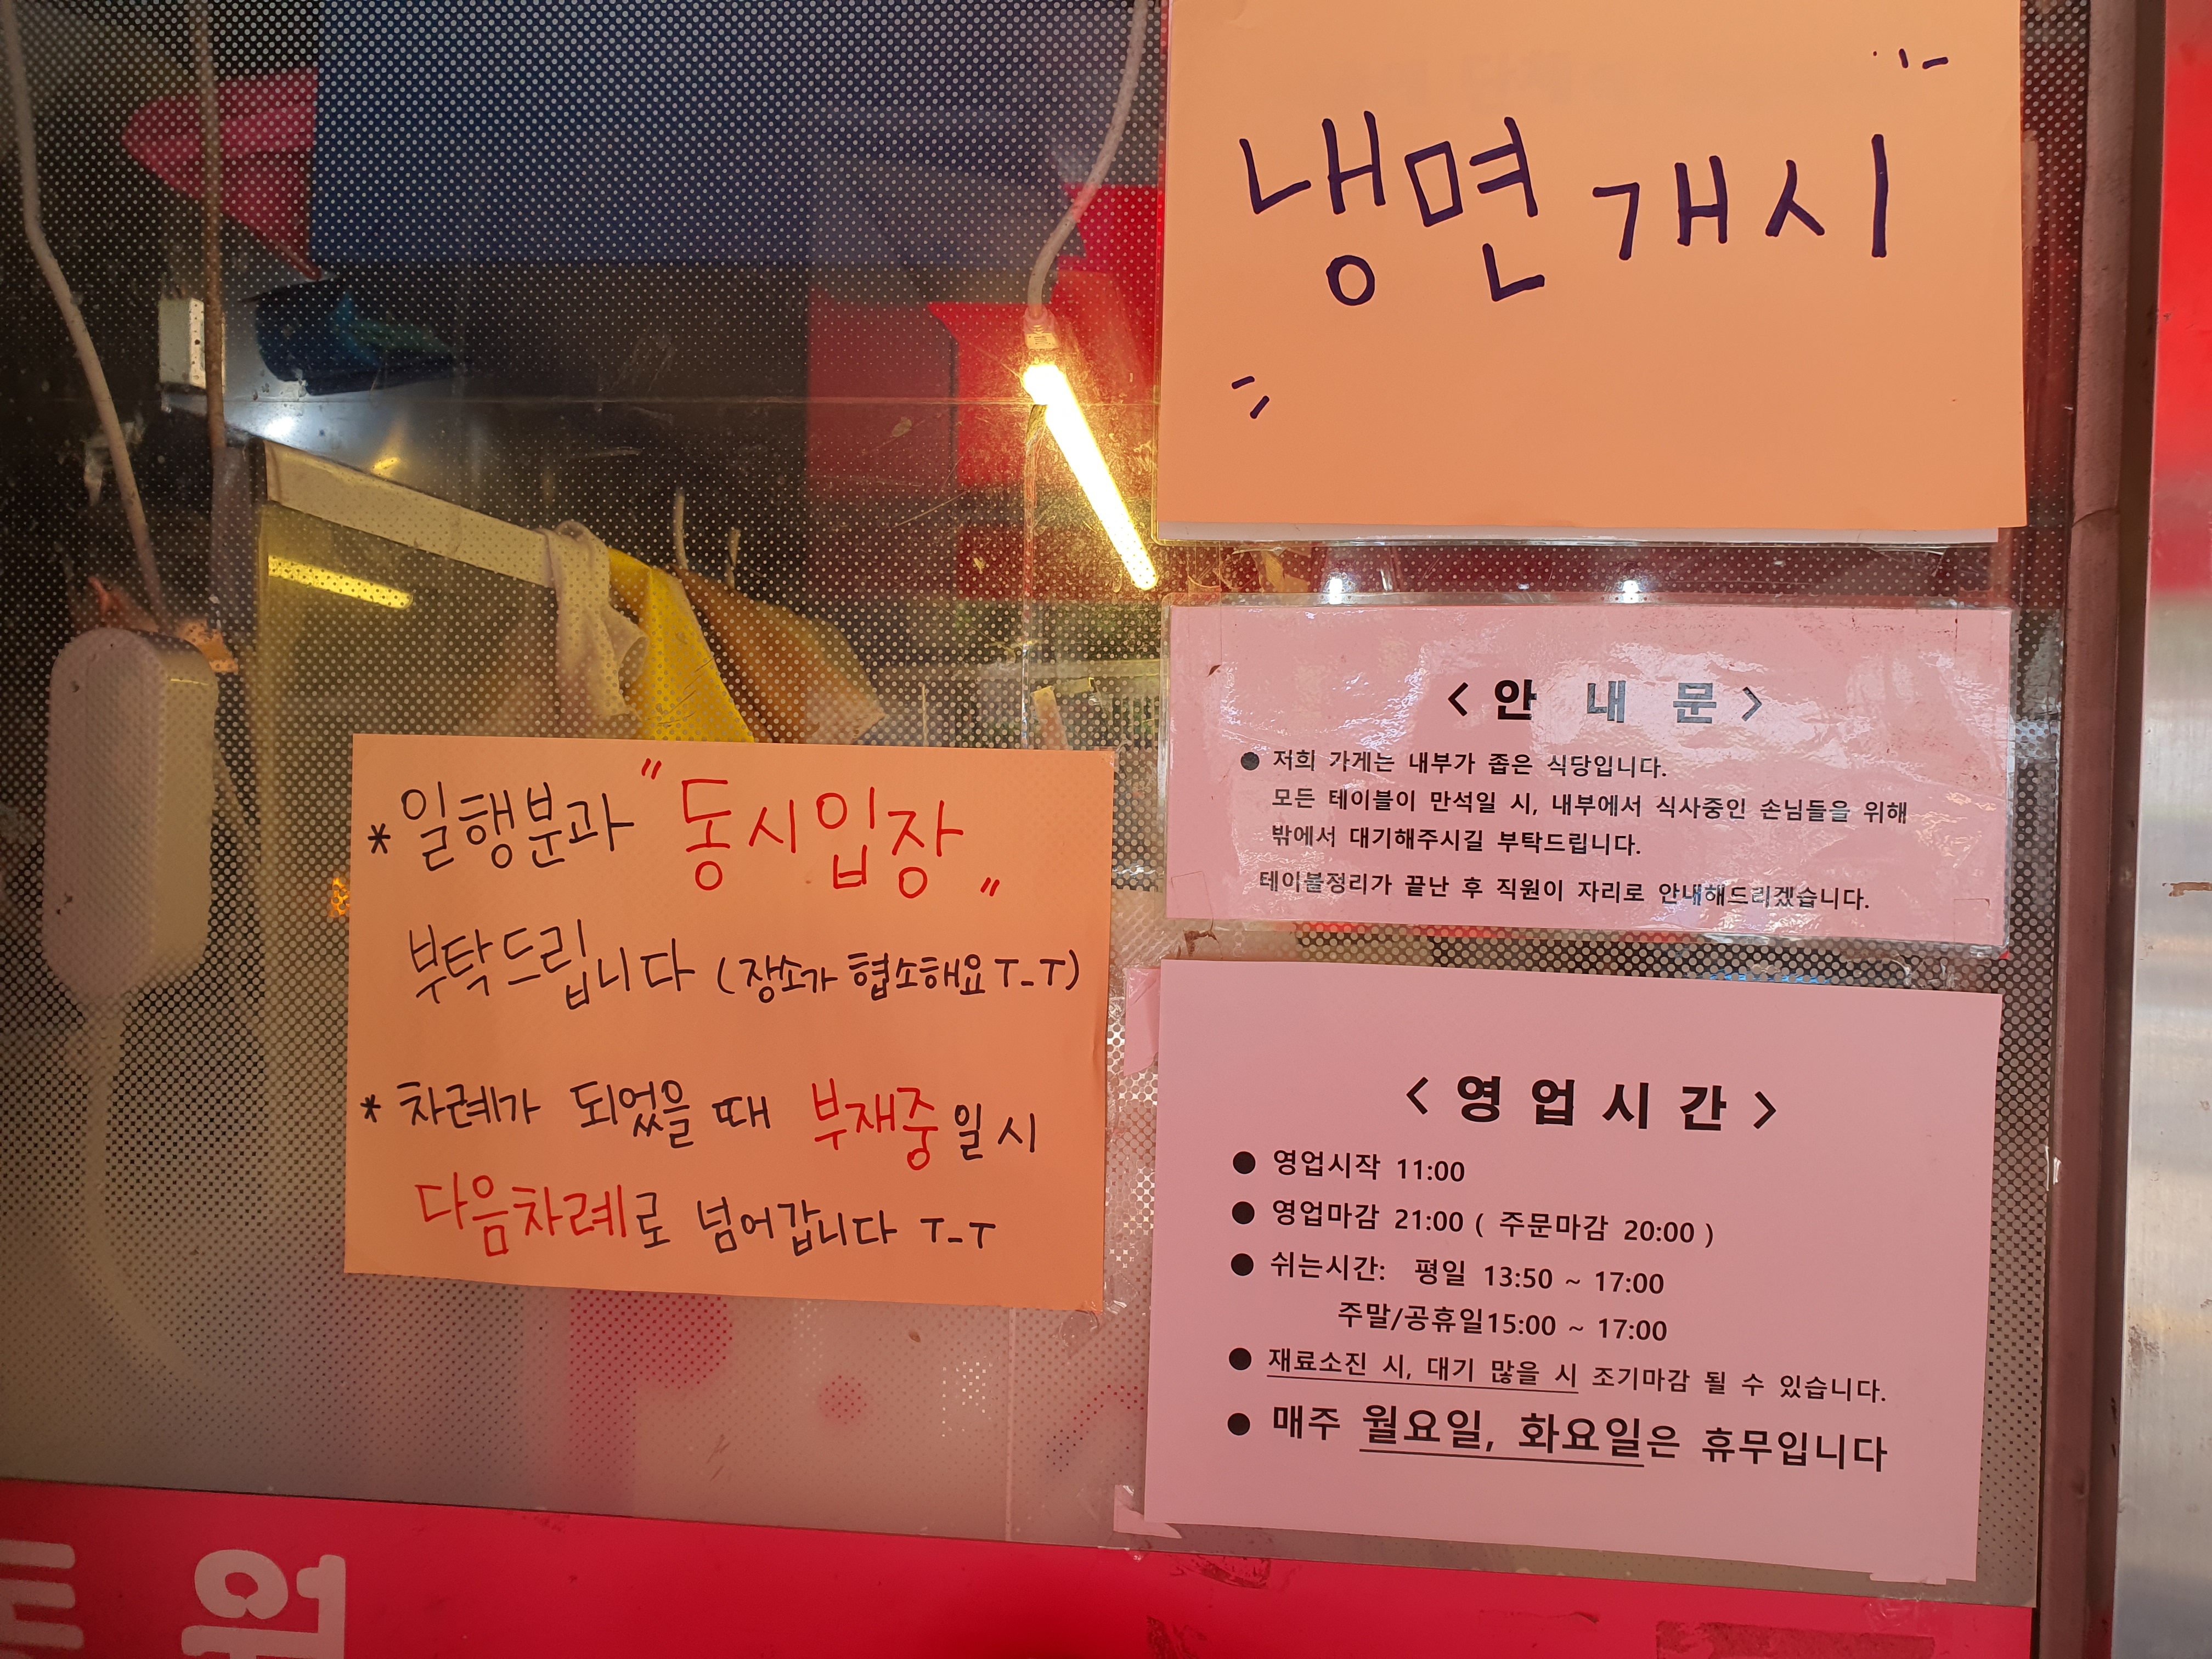 냉면 개시
< 안 내 문 >
● 저희 가게는 내부가 좁은 식당입니다.
모든 테이블이 만석일 시, 내부에서 식사중인 손님들을 위해
밖에서 대기해주시길 부탁드립니다.
테이블정리가 끝난 후 직원이 자리로 안내해드리겠습니다.
* 일행분과 "동시입장"
부탁드립니다 (장소가 협소해요 T_T)
* 차례가 되었을 때 부재중일 시
다음차례로 넘어갑니다 T_T
< 영 업 시 간 >
● 영업시작 11:00
● 영업마감 21:00 ( 주문마감 20:00 )
● 쉬는시간: 평일 13:50 ~ 17:00
주말/공휴일15:00 ~ 17:00
● 재료소진 시, 대기 많을 시 조기마감 될 수 있습니다.
● 매주 월요일, 화요일은 휴무입니다